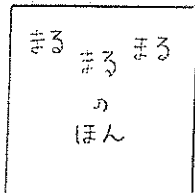 まる まる まる
の
ほん